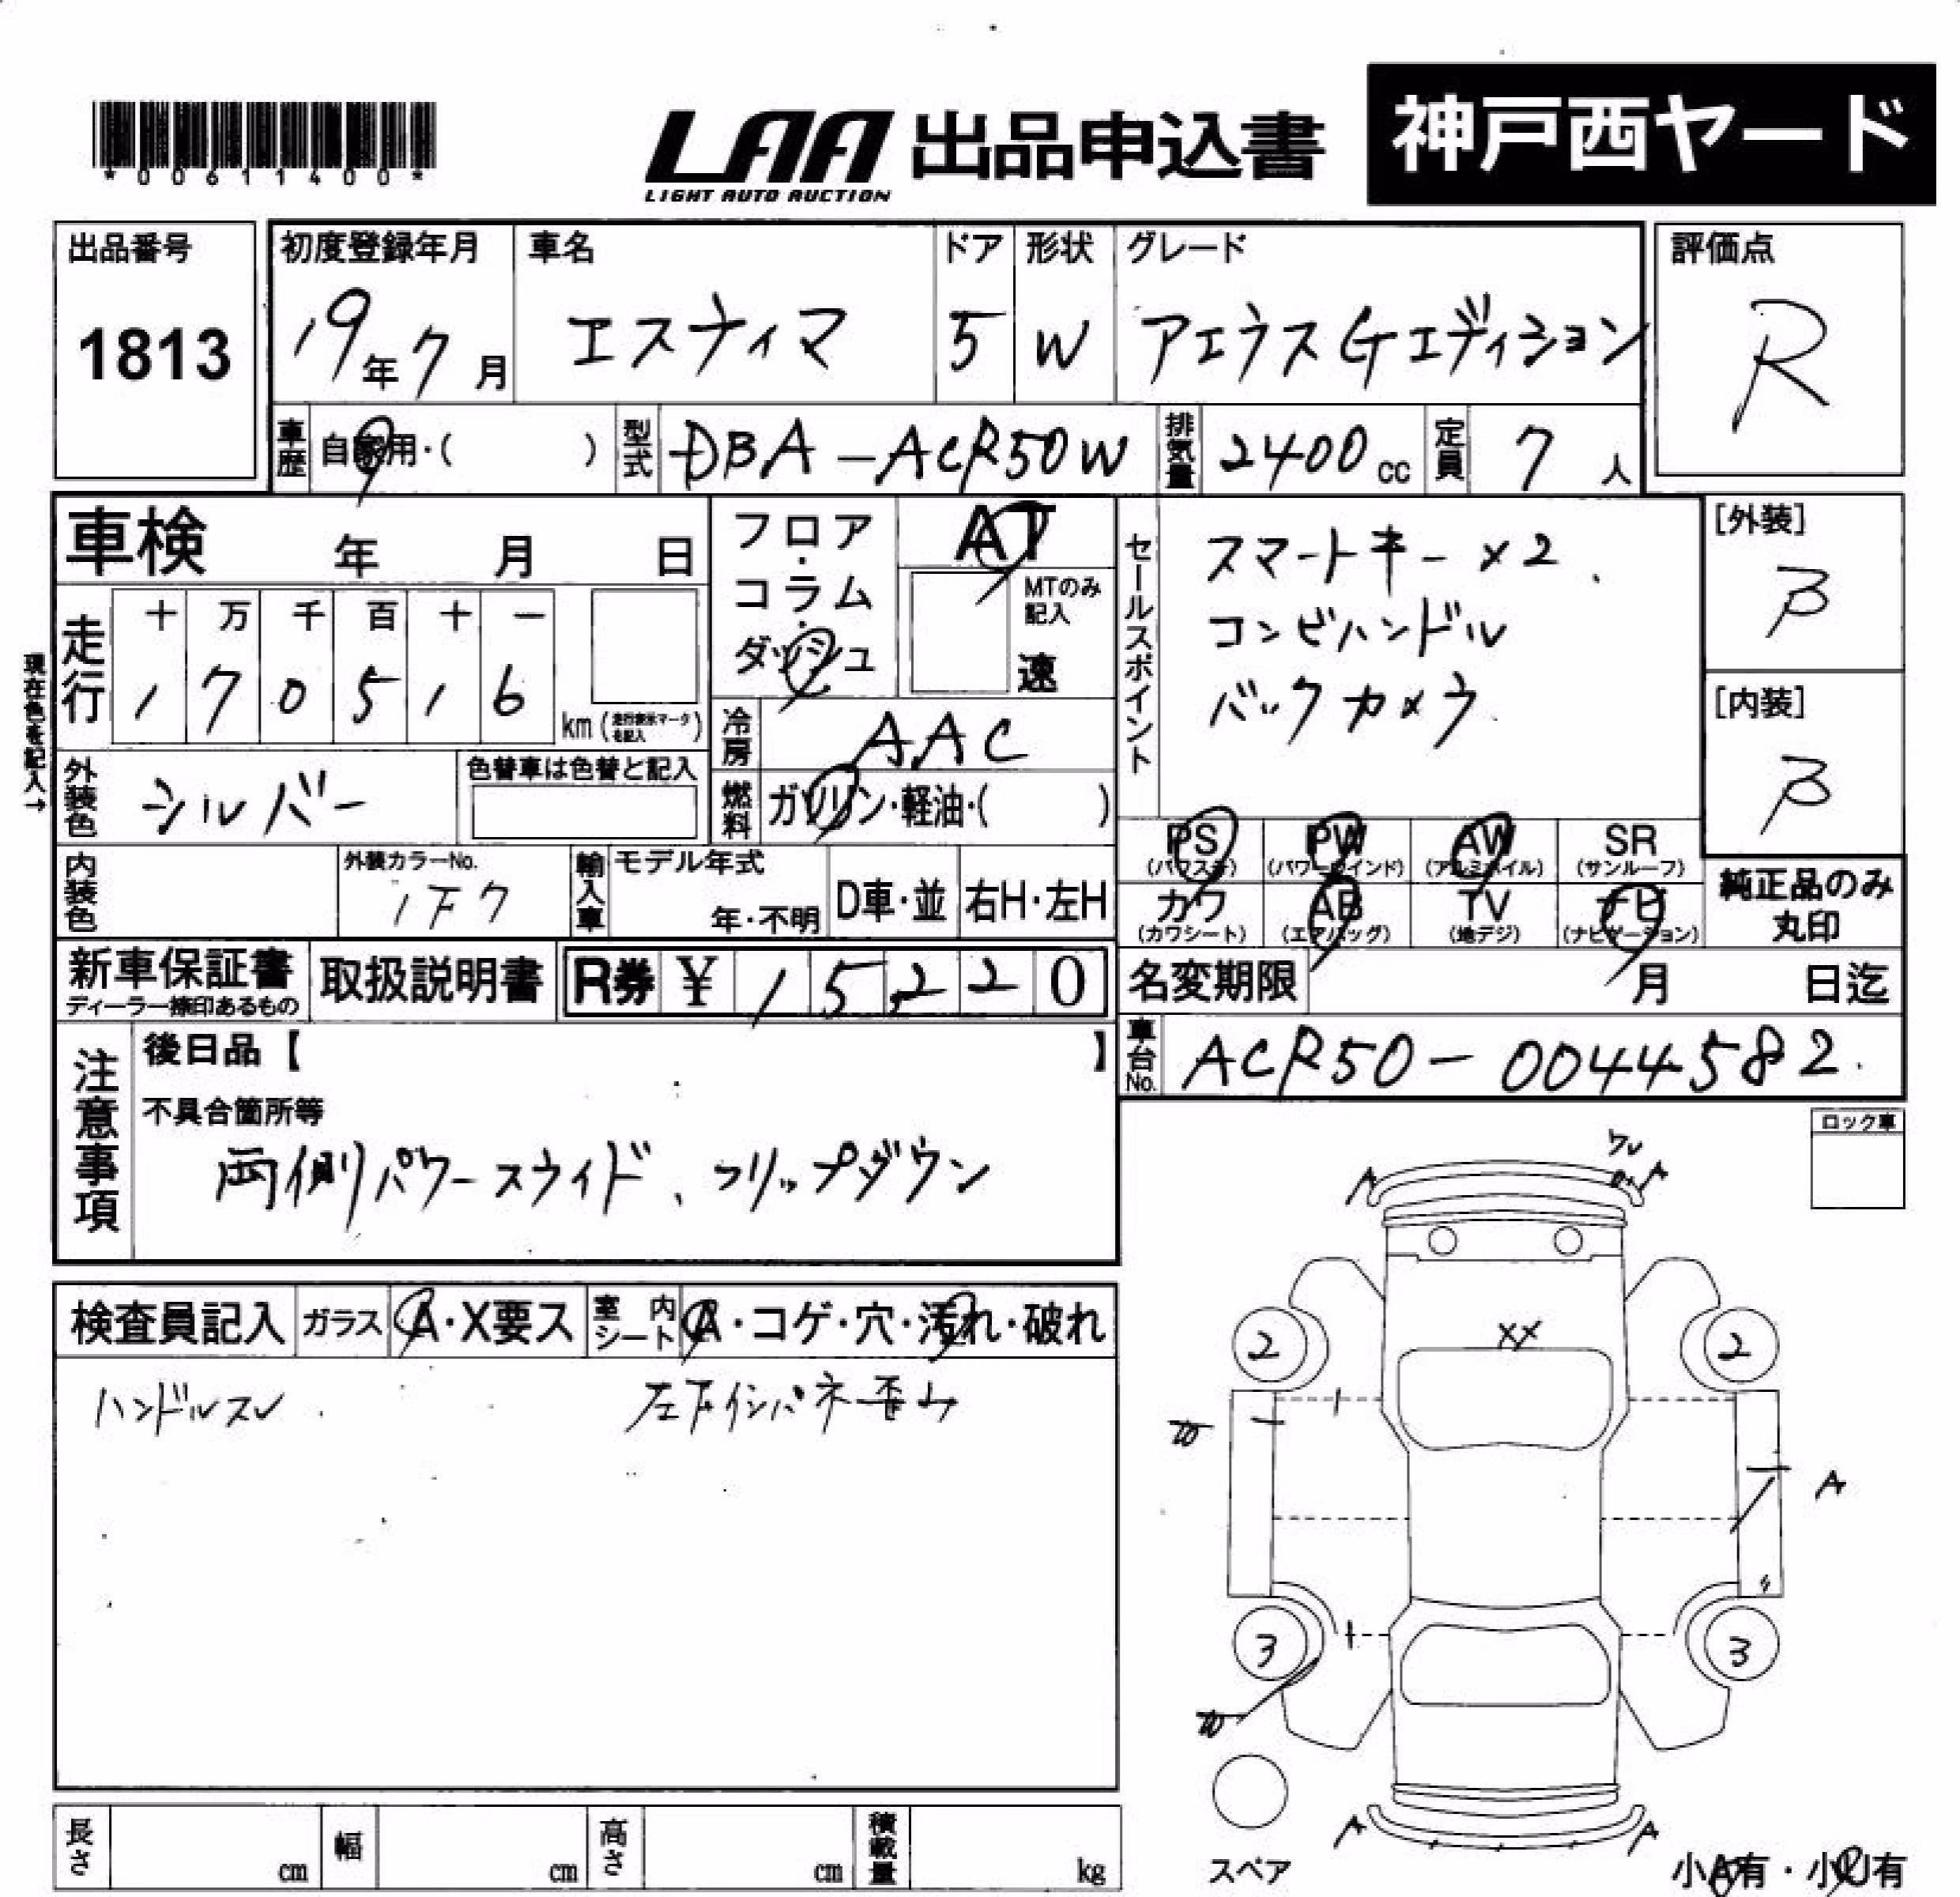 *00611400*
LAA 出品申込書 神戸西ヤード
LIGHT AUTO AUCTION
出品番号 初度登録年月 車名 ドア 形状 グレード 評価点
1813 19年7月 エスティマ 5 W アエラスGエディション R
車歴 自家用・( ) 型式 DBA-ACR50W 排気量 2400cc 定員 7人
車検 年 月 日 フロア・コラム・ダッシュ AT MTのみ記入 速
セールスポイント
スマートキー×2.
コンビハンドル
バックカメラ.
[外装]
B
[内装]
B
現在色を記入→
走行 十 万 千 百 十 一
1 7 0 5 1 6 km (走行表示マークを記入)
冷房 AAC
外装色 シルバー 色替車は色替と記入 燃料 ガソリン・軽油・( )
PS (パワステ) PW (パワーウインド) AW (アルミホイル) SR (サンルーフ)
カワ (カワシート) AB (エアバッグ) TV (地デジ) ナビ (ナビゲーション) 純正品のみ丸印
内装色 外装カラーNo. 1F7 輸入車 モデル年式 年・不明 D車・並 右H・左H
新車保証書 ディーラー捺印あるもの 取扱説明書 R券 ¥ 15,220 名変期限 月 日迄
車台No. ACR50-0044582.
注意事項 後日品【 】
不具合箇所等
両側パワースライド、フリップダウン
ロック車
検査員記入 ガラス A・X要ス 室内シート A・コゲ・穴・汚れ・破れ
ハンドルスレ. 左下インパネ歪み
ワレ
A A
XX
2 2
A
3 3
A A
スペア 小A有・小U有
長さ cm 幅 cm 高さ cm 積載量 kg